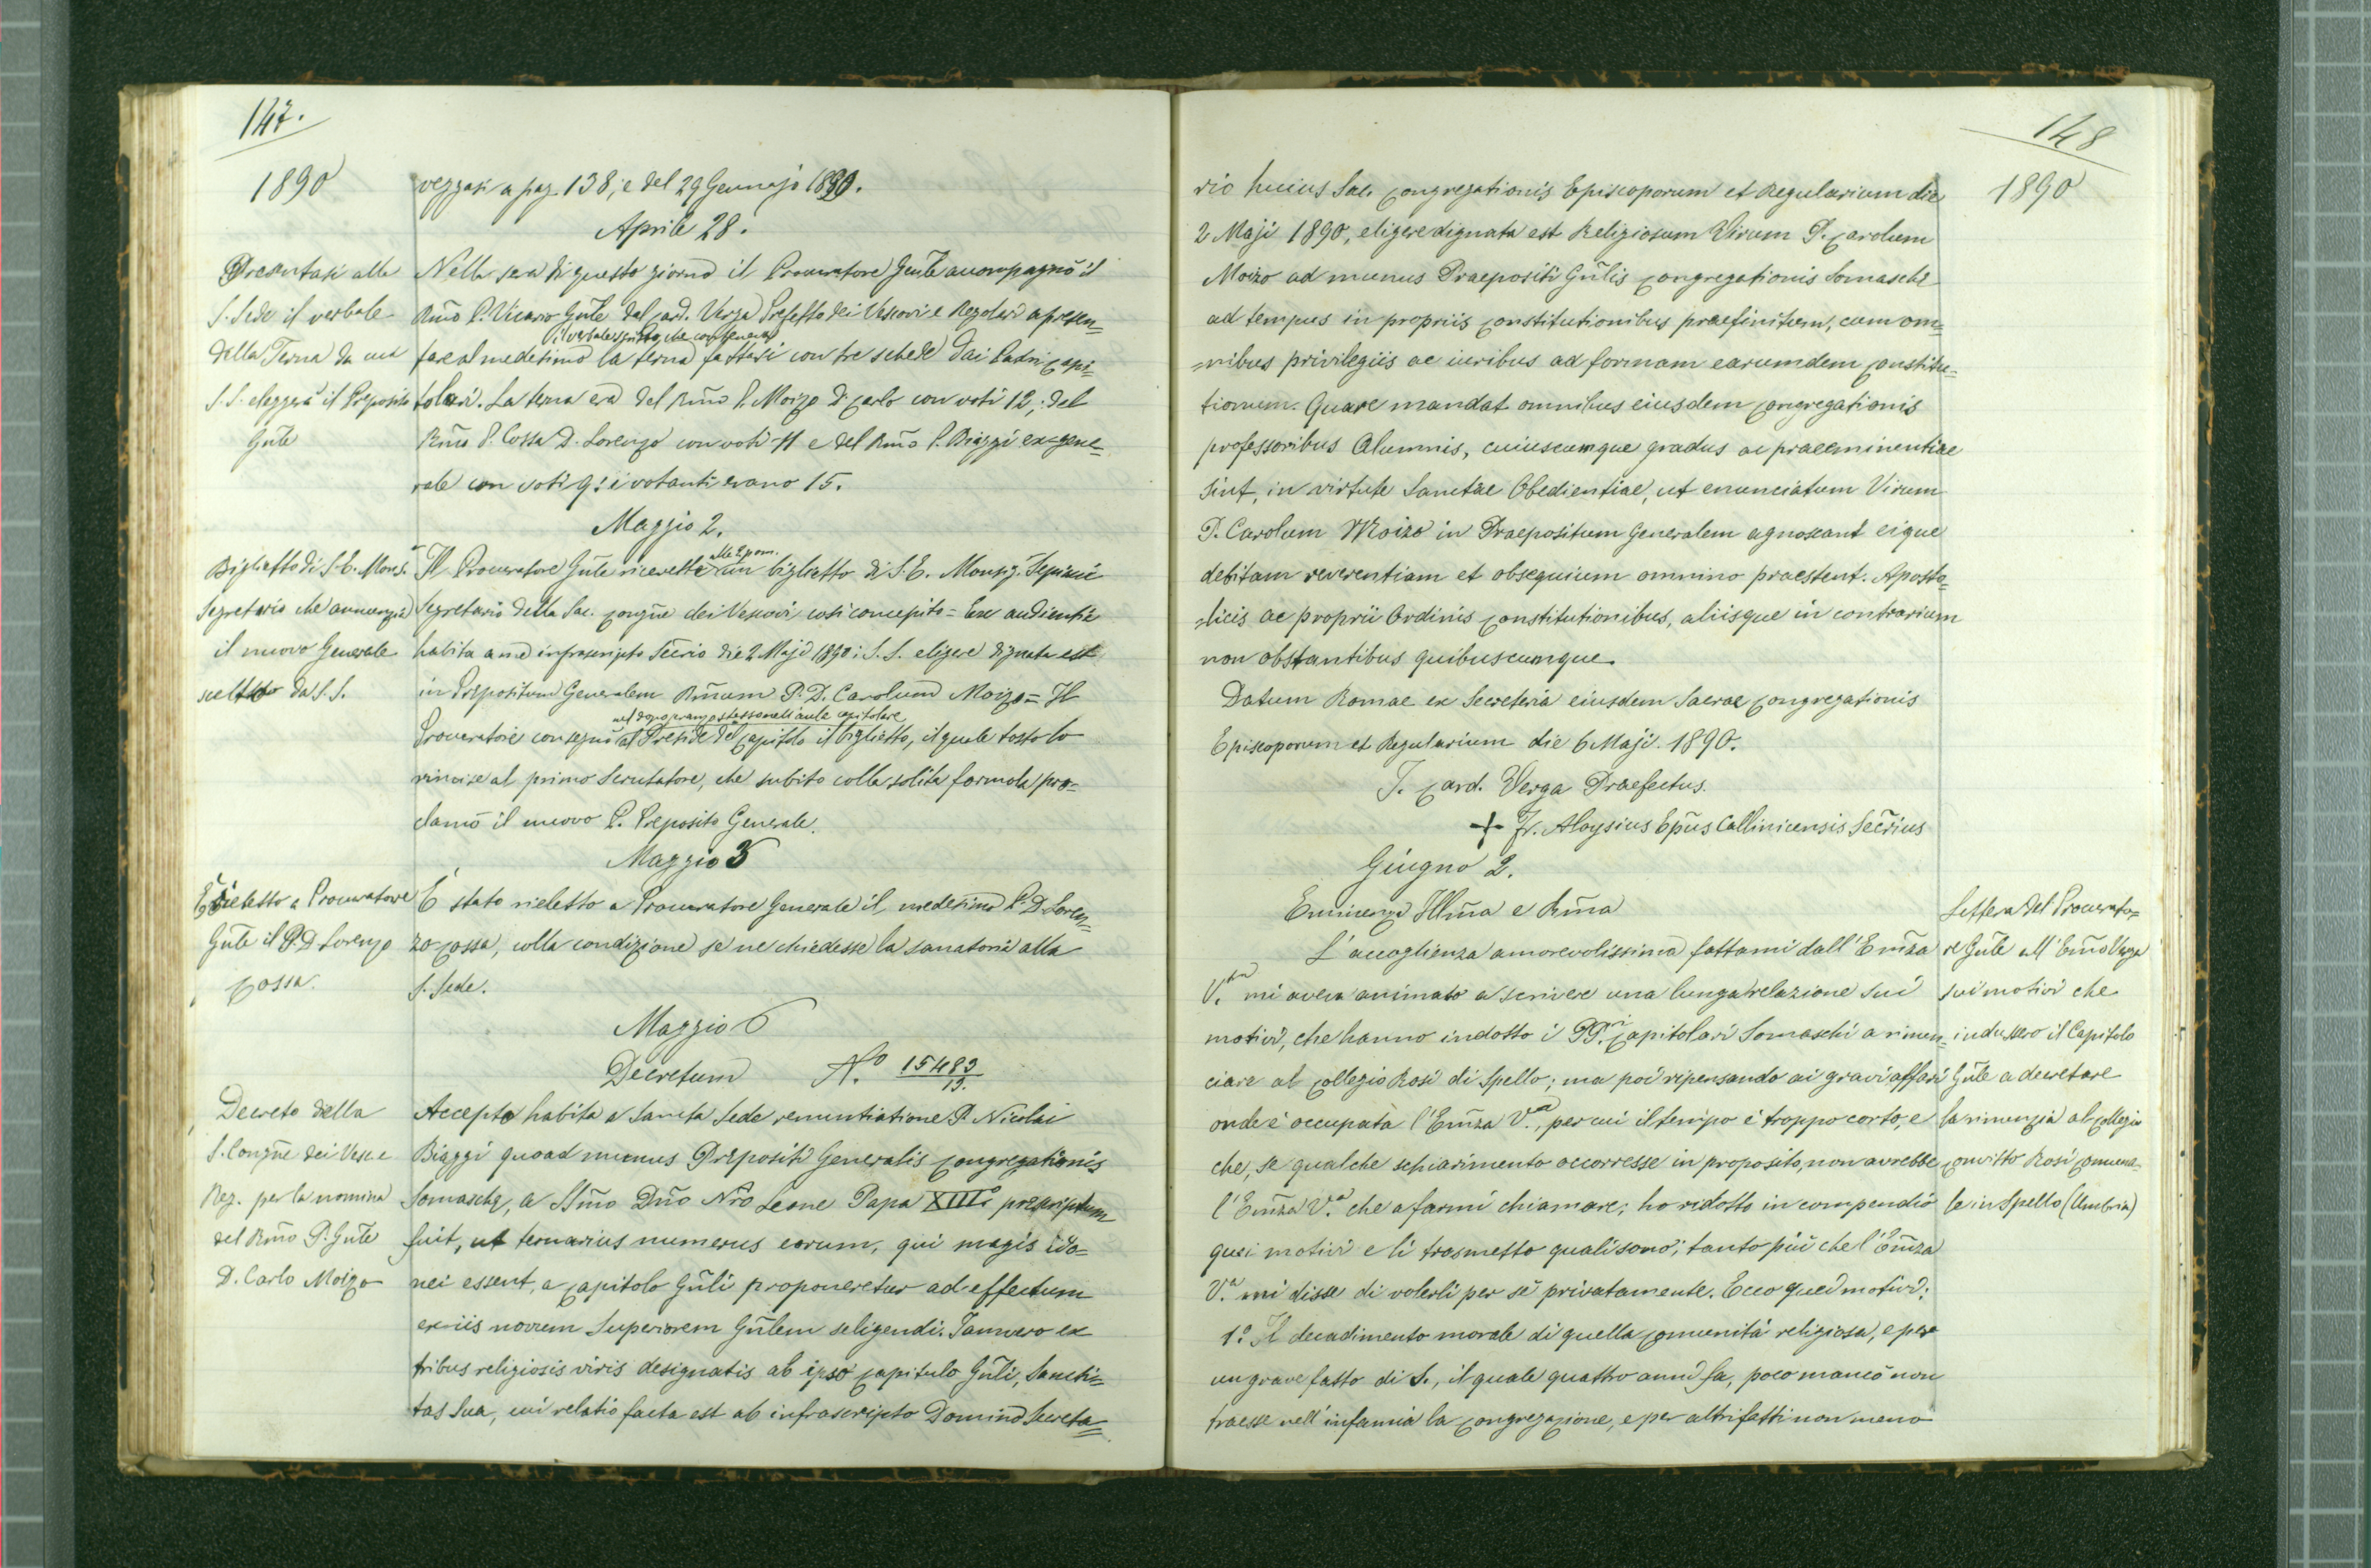 147.
1890
veggasi a pag. 138, e del 29 Gennajo 1890.
Aprile 28.
Presentasi alla
S. Sede il verbale
della Terna da cui
S. S. eleggerà il Preposito
Gñle
Nella sera di questo giorno il Procuratore Gñle accompagnò il
Rm̃o P. Vicario Gñle dal Card. Verga Prefetto dei Vescovi e Regolari a presen=
il verbale scritto, che conteneva
tare al medesimo la terna fattasi con tre schede dai Padri Capi=
tolari. La terna era del Rm̃o P. Moizo D. Carlo con voti 12; del
Rm̃o P. Cossa D. Lorenzo con voti 11 e del Rm̃o P. Biaggi ex=gene=
rale con voti 9: i votanti erano 15.
Maggio 2.
Biglietto di S. E. Mons.r
Segretario che annunzia
il nuovo Generale
scelto da S. S.
alle 2 pom.
Il Procuratore Gñle ricevette un biglietto di S. E. Monsig. Sepiacci
Segretario della Sac. Congñe dei Vescovi così concepito = Ex audientia
habita a me infrascripto Secrio die 2 Maji 1890: S. S. eligere dignata est
in Prepositum Generalem Rm̃um P. D. Carolum Moizo = Il
nel dopo pranzo stesso nell'aula capitolare
Procuratore consegnò al Preside del Capitolo il biglietto, il quale tosto lo
rimise al primo Scrutatore, che subito colla solita formola pro=
clamò il nuovo P. Preposito Generale.
Maggio 5
È rieletto a Procuratore
Gñle il P. D. Lorenzo
Cossa.
È stato rieletto a Procuratore Generale il medesimo P. D. Loren=
zo Cossa, colla condizione se ne chiedesse la sanatoria alla
S. Sede.
Maggio 6
Decretum N.o 15483/13.
Decreto della
S. Congñe dei Vesc. e
Reg. per la nomina
del Rm̃o P. Gñle
D. Carlo Moizo
Accepta habita a Sancta Sede renuntiatione P. Nicolai
Biaggi quoad munus Præpositi Generalis Congregationis
Somaschæ, a SSm̃o Dño Nr̃o Leone Papa XIII. præscriptum
fuit, ut ternarius numerus eorum, qui magis ido=
nei essent, a Capitolo Gñli proponeretur ad effectum
ex iis novum Superiorem Gñlem seligendi. Jamvero ex
tribus religiosis viris designatis ab ipso Capitulo Gñli, Sancti=
tas Sua, cui relatio facta est ab infrascripto Domino Secreta=
148
1890
rio huius Sac. Congregationis Episcoporum et Regularium die
2 Maji 1890, eligere dignata est Religiosum Virum P. Carolum
Moizo ad munus Praepositi Gñlis Congregationis Somaschæ
ad tempus in propriis Constitutionibus praefinitum, cum om=
=nibus privilegiis ac iuribus ad formam earumdem Constitu=
tionum. Quare mandat omnibus eiusdem Congregationis
professoribus Alumnis, cuiuscumque gradus ac praeeminentiae
sint, in virtute Sanctae Obedientiae, ut enunciatum Virum
P. Carolum Moizo in Praepositum Generalem agnoscant eique
debitam reverentiam et obsequium omnino praestent. Aposto=
=licis ac proprii Ordinis Constitutionibus, aliisque in contrarium
non obstantibus quibuscumque.
Datum Romae ex Secreteria eiusdem Sacrae Congregationis
Episcoporum et Regularium die 6 Maji 1890.
J. Card. Verga Praefectus.
+ Fr. Aloysius Ep̃us Callinicensis Secr̃ius
Giugno 2.
Eminenza Illm̃a e Rm̃a
L'accoglienza amorevolissima fattami dall'Em̃za
V.ra mi aveva animato a scrivere una lunga relazione sui
motivi, che hanno indotto i PP.ri Capitolari Somaschi a rinun=
ciare al Collegio Rosi di Spello; ma poi ripensando ai gravi affari
onde è occupata l'Em̃za V.ra, per cui il tempo è troppo corto, e
che, se qualche schiarimento occorresse in proposito, non avrebbe
l'Em̃za V.a che a farmi chiamare; ho ridotto in compendio
quei motivi e li trasmetto quali sono; tanto più che l'Em̃za
V.a mi disse di volerli per sè privatamente. Ecco quei motivi:
1.o Il decadimento morale di quella Comunità religiosa, e per
un grave fatto di S., il quale quattro anni fa, poco mancò non
traesse nell'infamia la Congregazione, e per altri fatti non meno
Lettera del Procurato=
re Gñle all'Em̃o Verga
sui motivi che
indussero il Capitolo
Gñle a decretare
la rinunzia al Collegio
Convitto Rosi Comuna=
le in Spello (Umbria)